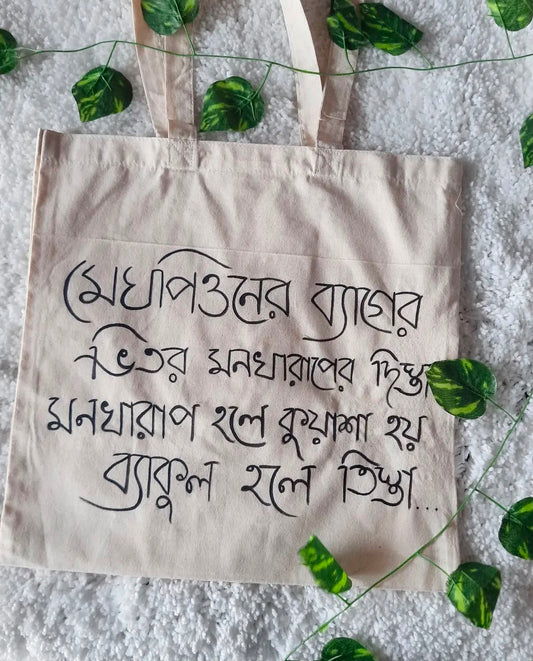 মেঘপিওনের ব্যাগের
ভিতর মনখারাপের দিস্তা
মনখারাপ হলে কুয়াশা হয়
ব্যাকুল হলে তিস্তা...